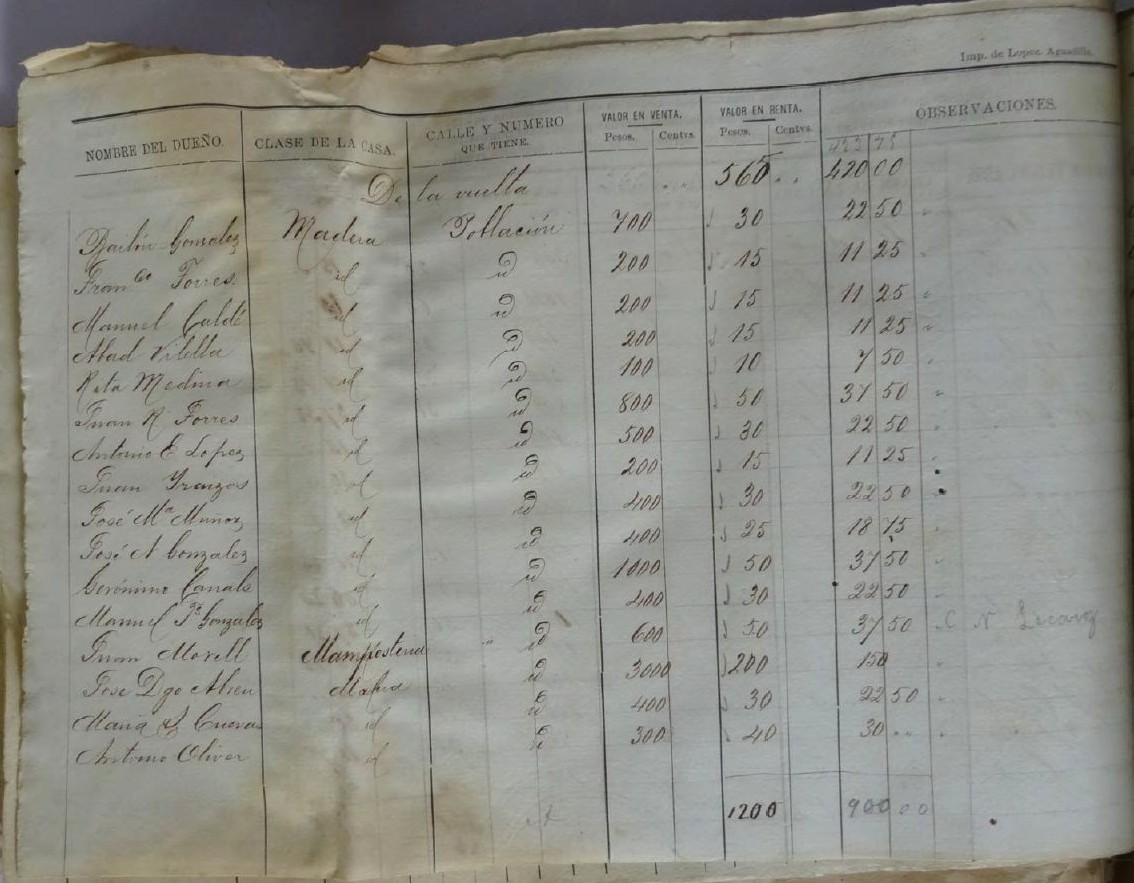 Imp. de Lopez. Aguadilla.
NOMBRE DEL DUEÑO. CLASE DE LA CASA. CALLE Y NUMERO QUE TIENE. VALOR EN VENTA. VALOR EN RENTA. OBSERVACIONES.
Pesos. Centvs. Pesos. Centvs.
423 75
De la vuelta 565 .. 420 00
Gonzalez Madera Población 700 30 22 50
Franco Torres id id 200 15 11 25
Manuel Caldé id id 200 15 11 25
Abad Vilella id id 200 15 11 25
Rita Medina id id 100 10 7 50
Juan R Torres id id 800 50 37 50
Antonio E Lopez id id 500 30 22 50
Juan Yranzos id id 200 15 11 25
José Ma Muñoz id id 400 30 22 50
José A Gonzalez id id 400 25 18 75
Gerónimo Canals id id 1000 50 37 50
Manuel Gonzalez id id 400 30 22 50
Juan Morell Mamposteria " id 600 50 37 50
José Dgo Abreu Madera id 3000 200 150
Maria Cuevas id id 400 30 22 50
Antonio Oliver id id 300 40 30 ..
1200 900 00